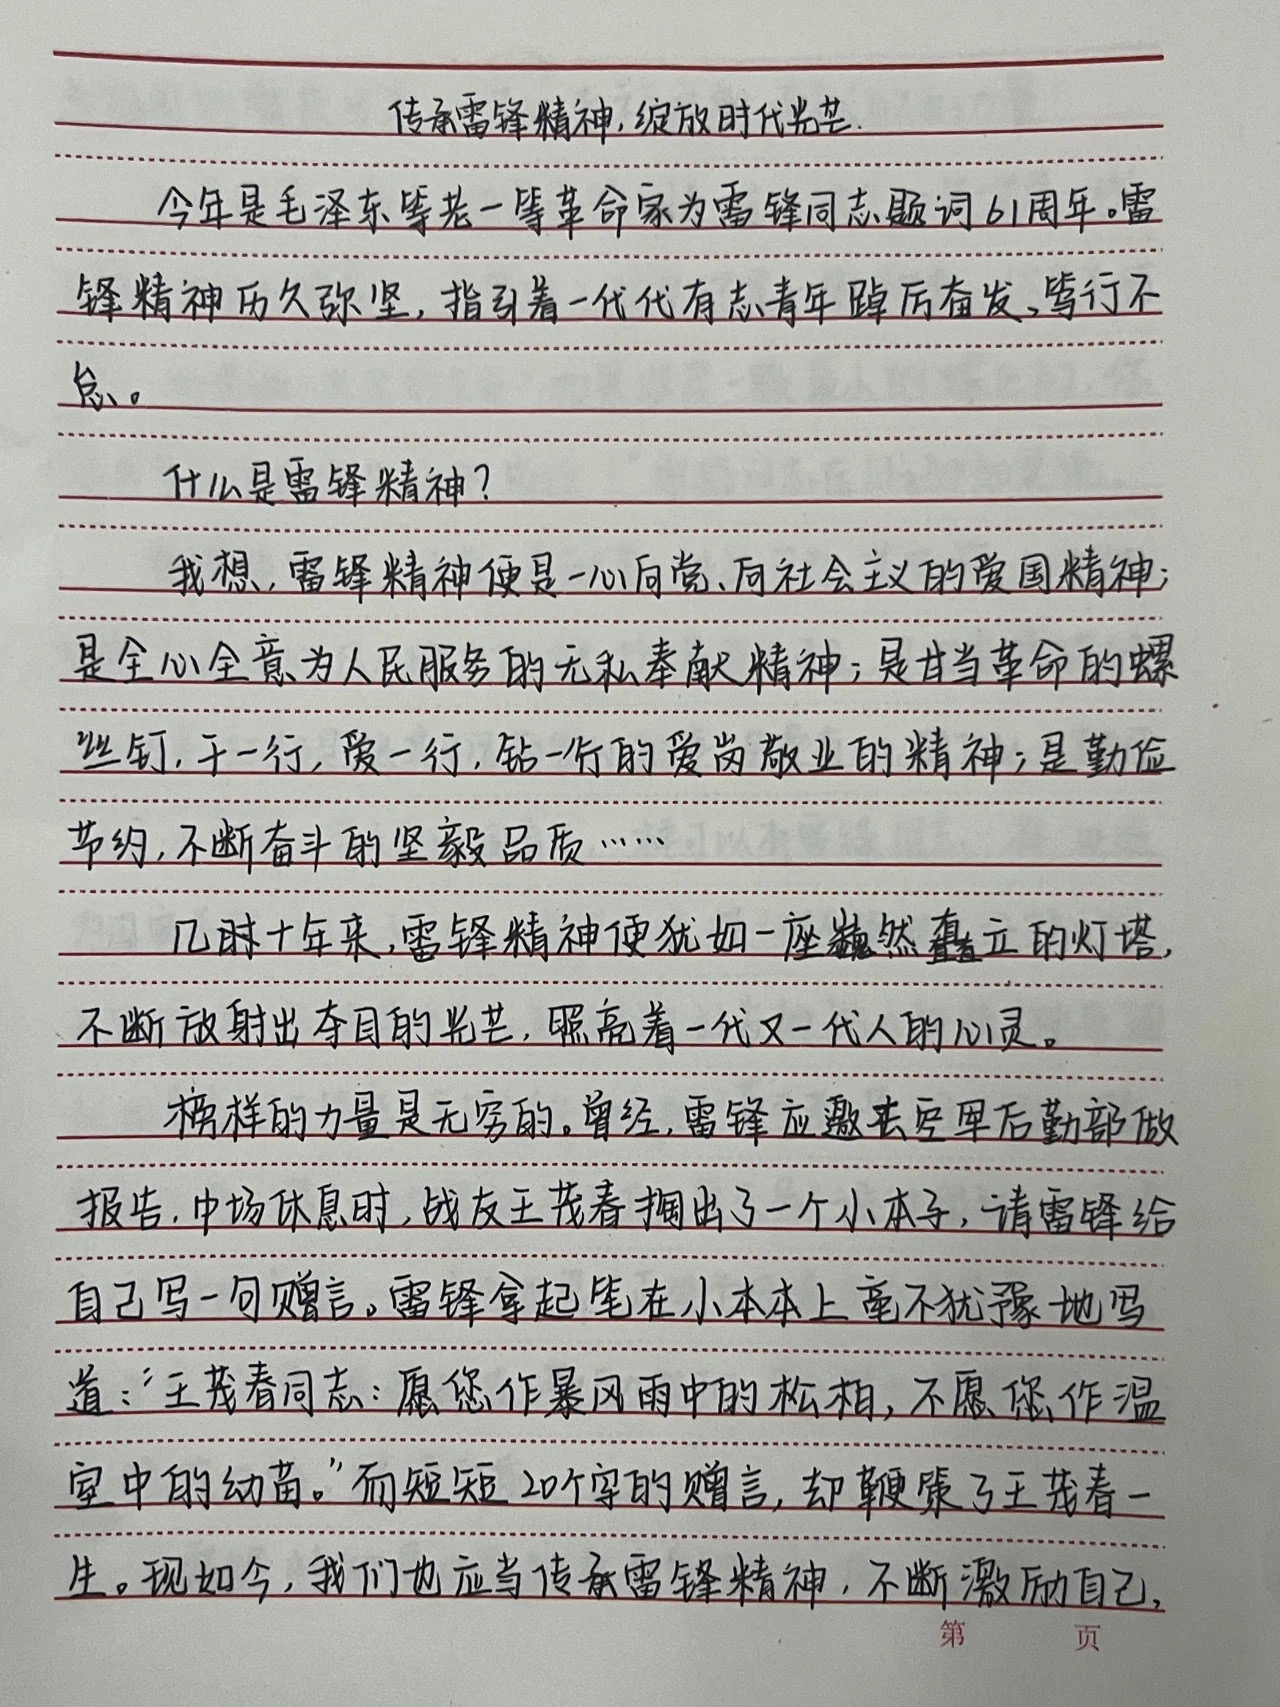 传承雷锋精神,绽放时代光芒.
今年是毛泽东等老一等革命家为雷锋同志题词61周年。雷
锋精神历久弥坚,指引着一代代有志青年踔厉奋发、笃行不
怠。
什么是雷锋精神?
我想,雷锋精神便是一心向党、向社会主义的爱国精神;
是全心全意为人民服务的无私奉献精神;是甘当革命的螺
丝钉,干一行,爱一行,钻一行的爱岗敬业的精神;是勤俭
节约,不断奋斗的坚毅品质……
几时十年来,雷锋精神便犹如一座巍然矗立的灯塔,
不断放射出夺目的光芒,照亮着一代又一代人的心灵。
榜样的力量是无穷的。曾经,雷锋应邀去空军后勤部做
报告,中场休息时,战友王茂春掏出了一个小本子,请雷锋给
自己写一句赠言。雷锋拿起笔在小本本上毫不犹豫地写
道:“王茂春同志:愿您作暴风雨中的松柏,不愿您作温
室中的幼苗。”而短短20个字的赠言,却鞭策了王茂春一
生。现如今,我们也应当传承雷锋精神,不断激励自己,
第 页